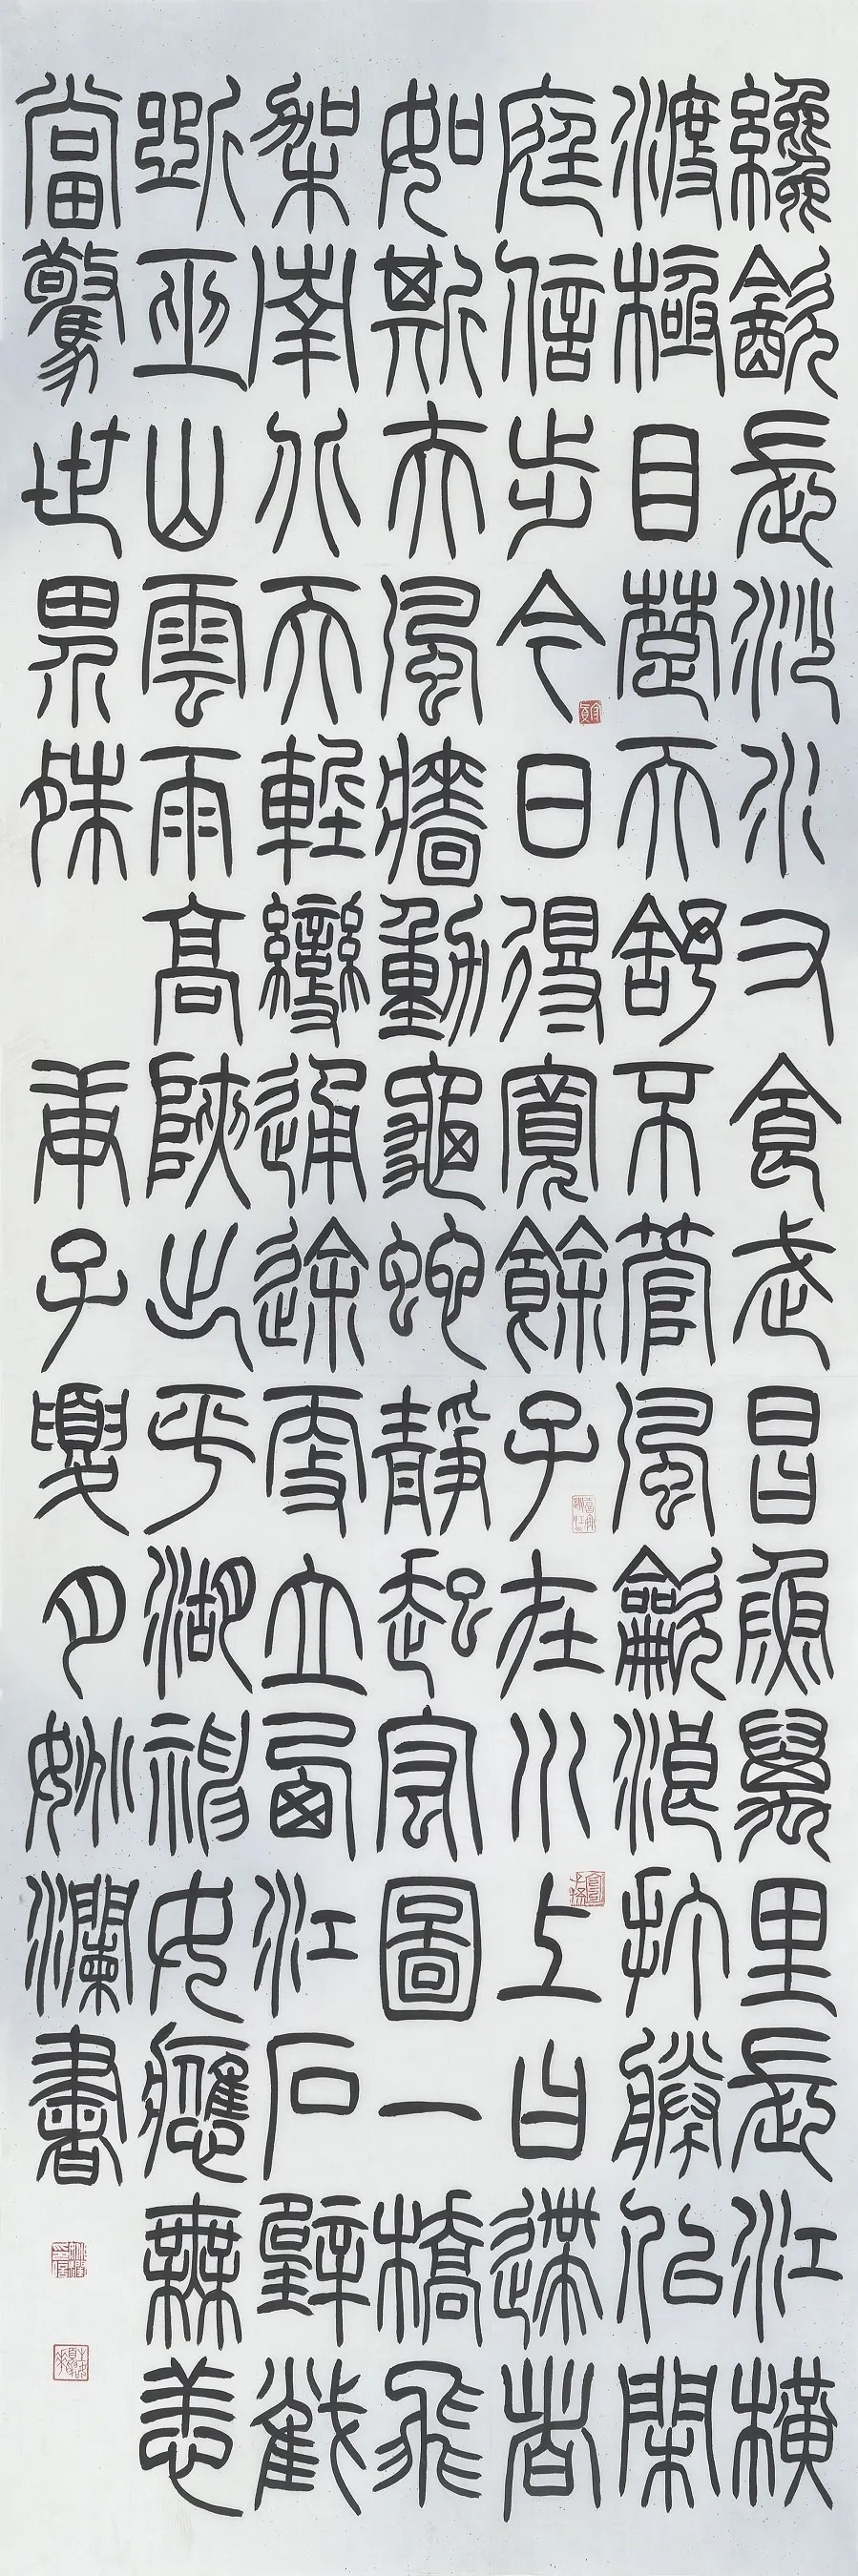 纔飲長沙水又食武昌魚萬里長江橫
渡極目楚天舒不管風龡浪打勝佀閑
庭信步今日得寬餘子在川上曰逝者
如斯夫風檣動龜蛇靜起宏圖一橋飛
架南北天塹變通途更立西江石壁截
斷巫山雲雨高峽出平湖神女應無恙
當驚世界殊
庚子夏月妙瀾書